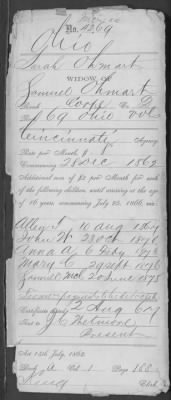 No. 4269
Ohio
Sarah Ohmart
WIDOW OF
Samuel Ohmart
Rank Corpl Co. D
Re 69 Ohio Vol
Cincinnati Agency
Rate per Month $ 8
Commencing 28 Dec 1862
Additional sum of $2 per Month for each
of the following children, until arriving at the age
of 16 years commencing July 25, 1866, viz:
10 Aug 1867
John W 28 Oct 1871
Anna 6 Feby 1873
Mary C 29 Sept 1876
Samuel 20 June 1878
Certificate dated 2 Aug 67
Sent to
Present
Act 14th July, 1862.
Book A Vol. 1 Page 168
Clerk